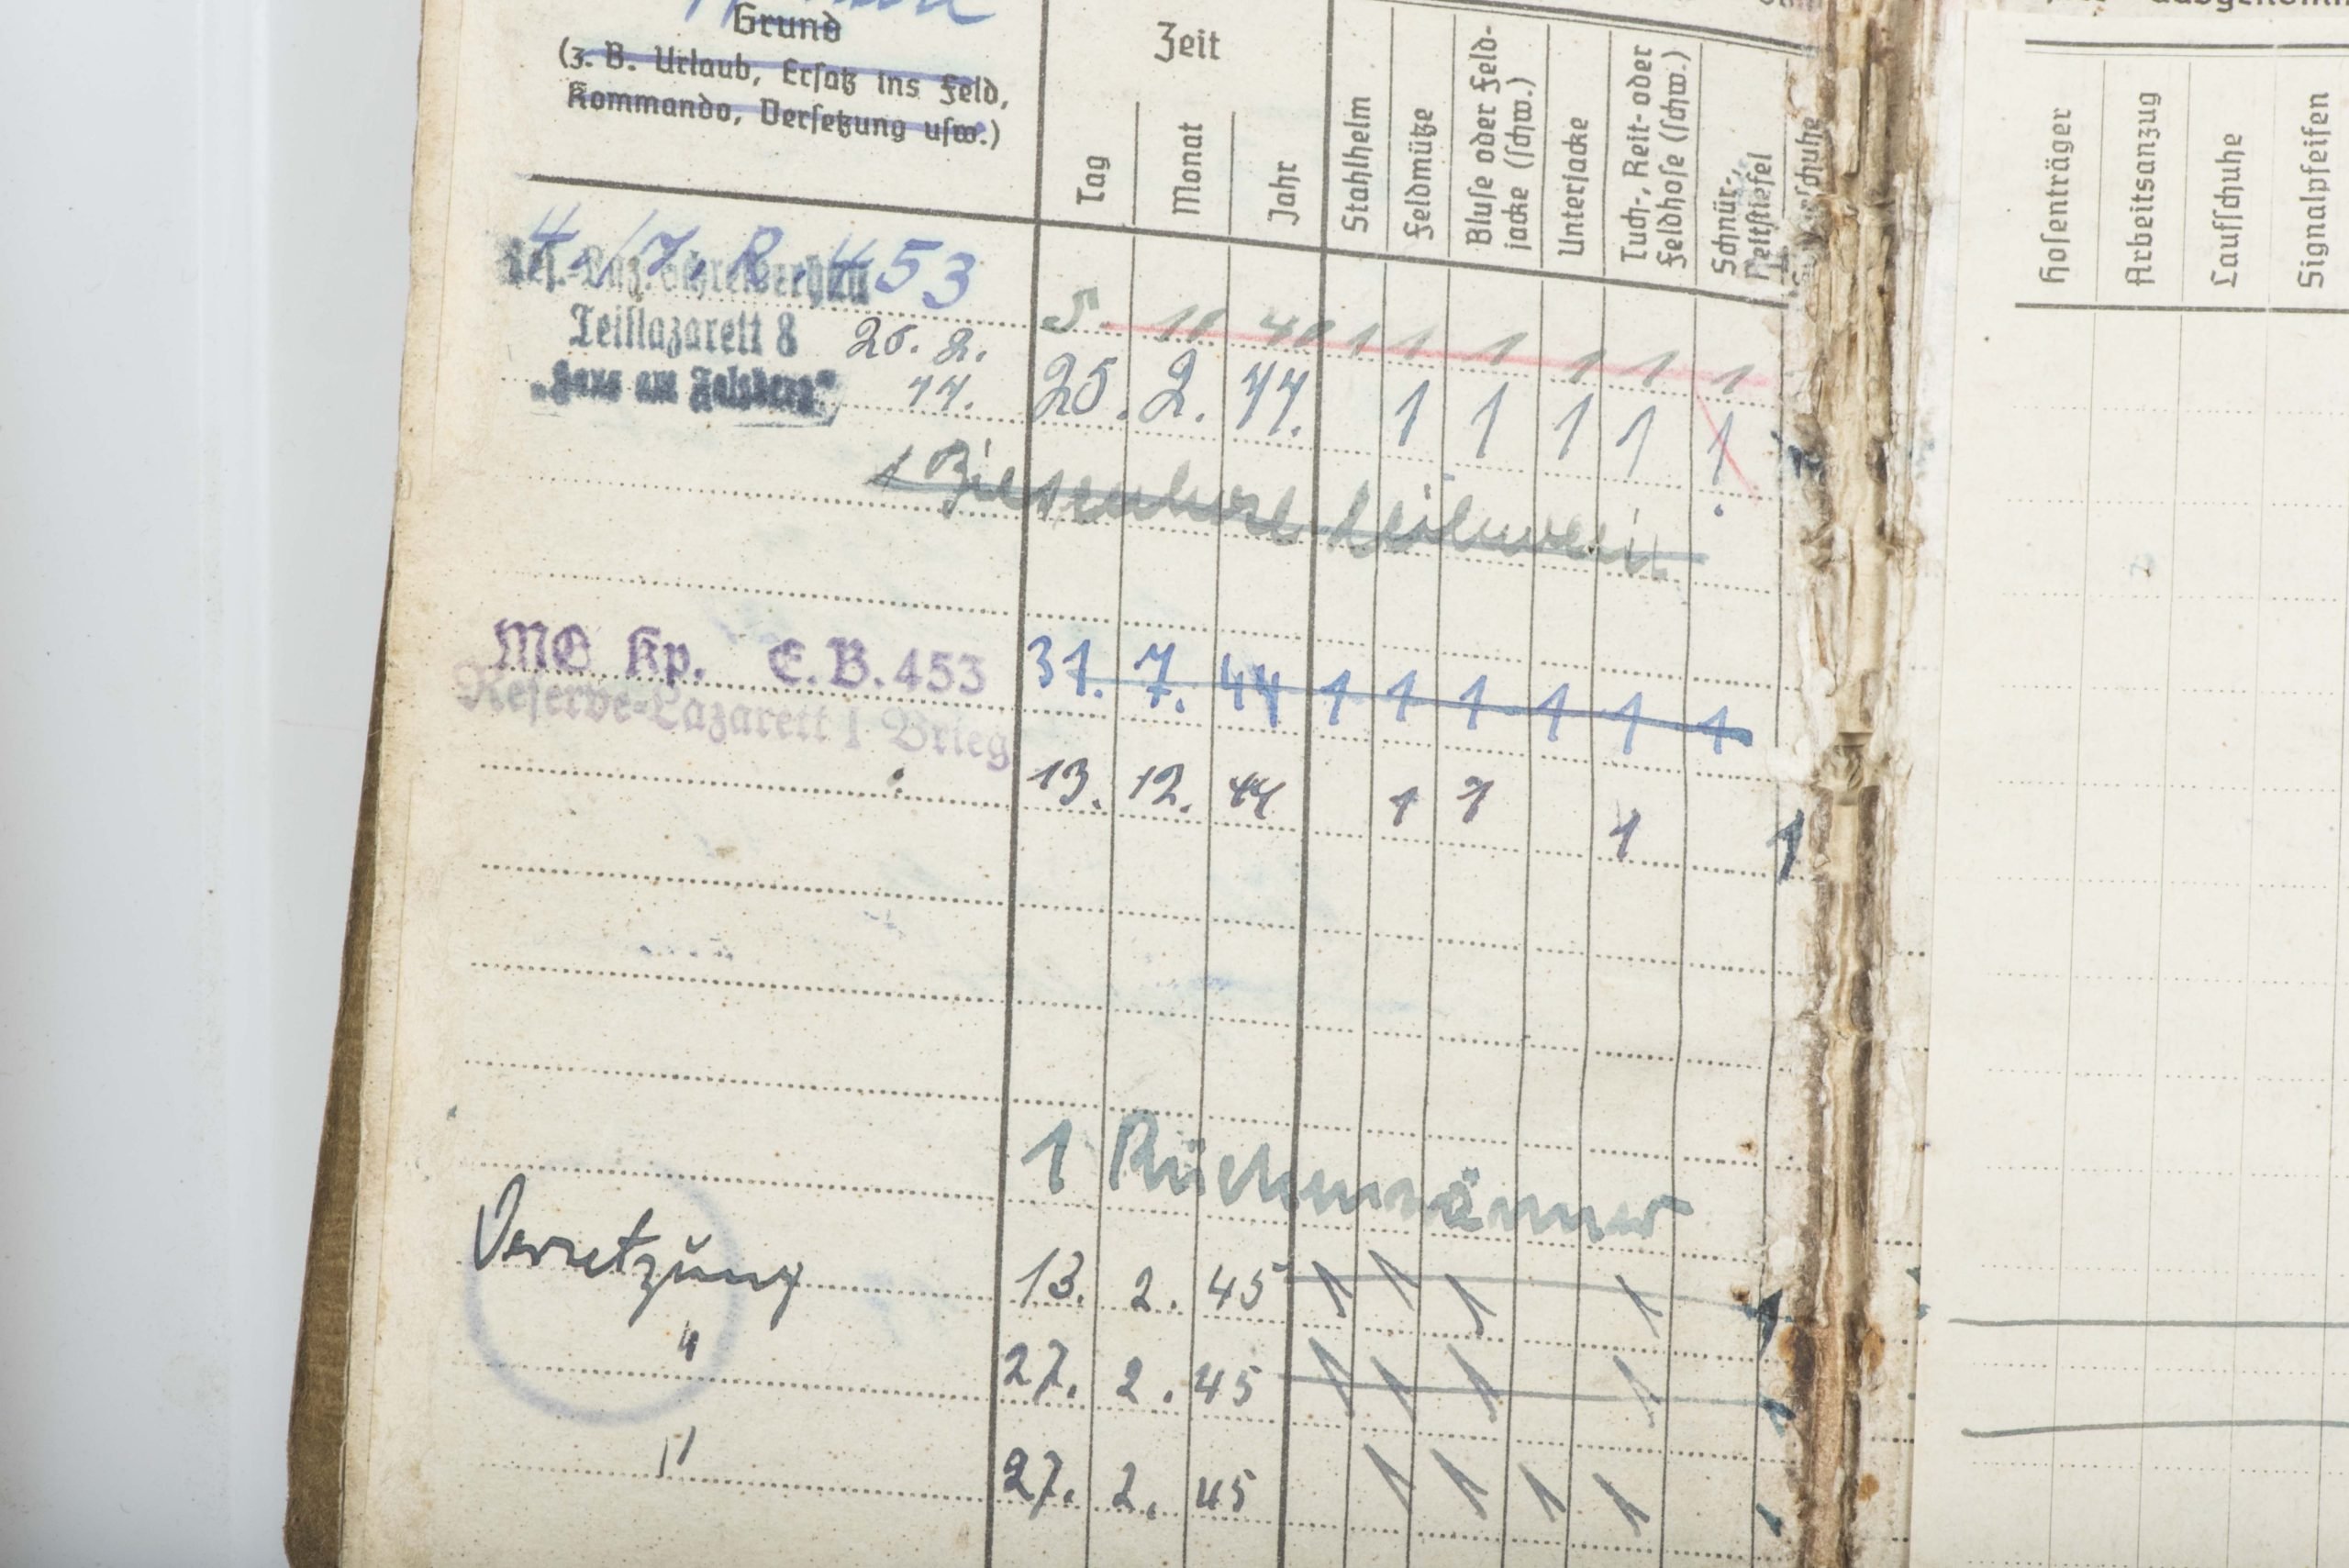 Grund
(z. B. Urlaub, Ersatz ins Feld,
Kommando, Versetzung usw.)
Zeit
Tag
Monat
Jahr
Stahlhelm
Feldmütze
Bluse oder Feld-
jacke (schw.)
Unterjacke
Tuch-, Reit- oder
Feldhose (schw.)
Schnür-,
Reitstiefel
Hosenträger
Arbeitsanzug
Laufschuhe
Signalpfeifen
453
5. 11 40 1 1 1 1 1 1
Teillazarett 8 26. 2.
"Haus am 44. 25. 2. 44. 1 1 1 1 1
1
MG Kp. E.B. 453 31. 7. 44 1 1 1 1 1 1
Reserve-Lazarett I Brieg
13. 12. 44 1 1 1 1
1
Versetzung 13. 2. 45 1 1 1 1 1
" 27. 2. 45 1 1 1 1 1
" 27. 2. 45 1 1 1 1 1